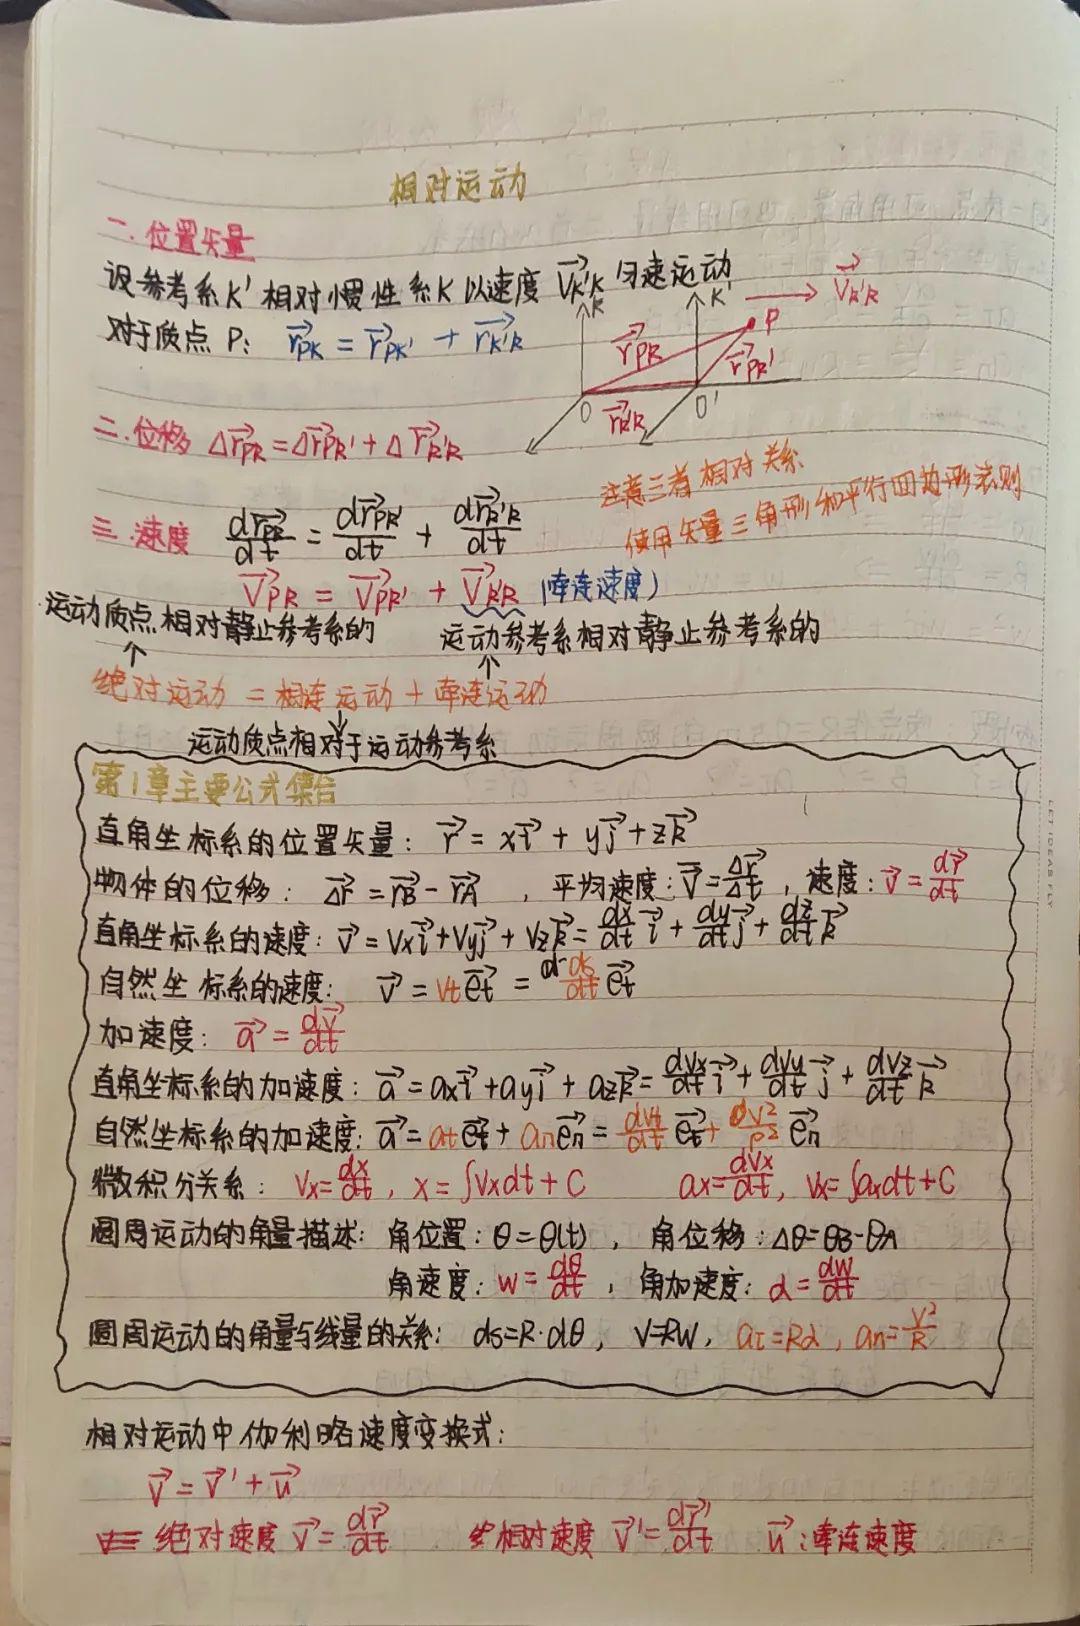 相对运动
一.位置矢量
设参考系K'相对惯性系K以速度 V⃗K'K 匀速运动
对于质点P: r⃗PK = r⃗PK' + r⃗K'K
K K' V⃗K'K
r⃗PK P r⃗PK'
O r⃗K'K O'
二.位移 Δr⃗PK = Δr⃗PK' + Δr⃗K'K
注意三者相对关系
使用矢量三角形和平行四边形法则
三.速度 dr⃗PK/dt = dr⃗PK'/dt + dr⃗K'K/dt
V⃗PK = V⃗PK' + V⃗K'K (牵连速度)
运动质点相对静止参考系的 运动参考系相对静止参考系的
↑ ↑
绝对运动 = 相连运动 + 牵连运动
↓
运动质点相对于运动参考系
第1章主要公式集合
直角坐标系的位置矢量: r⃗ = xi⃗ + yj⃗ + zk⃗
物体的位移: Δr⃗ = r⃗B - r⃗A , 平均速度: v⃗ = Δr⃗/Δt , 速度: v⃗ = dr⃗/dt
直角坐标系的速度: v⃗ = Vxi⃗ + Vyj⃗ + Vzk⃗ = dx/dt i⃗ + dy/dt j⃗ + dz/dt k⃗
自然坐标系的速度: v⃗ = Vt e⃗t = ds/dt e⃗t
加速度: a⃗ = dv⃗/dt
直角坐标系的加速度: a⃗ = axi⃗ + ayj⃗ + azk⃗ = dVx/dt i⃗ + dVy/dt j⃗ + dVz/dt k⃗
自然坐标系的加速度: a⃗ = at e⃗t + an e⃗n = dVt/dt e⃗t + V²/ρ e⃗n
微积分关系: Vx = dx/dt , x = ∫Vxdt + C ax = dVx/dt , Vx = ∫axdt + C
圆周运动的角量描述: 角位置: θ = θ(t) , 角位移: Δθ = θB - θA
角速度: w = dθ/dt , 角加速度: α = dw/dt
圆周运动的角量与线量的关系: ds = R·dθ , V = RW , aτ = Rα , an = V²/R
相对运动中伽利略速度变换式:
v⃗ = v⃗' + u⃗
绝对速度 v⃗ = dr⃗/dt 相对速度 v⃗' = dr⃗'/dt u⃗: 牵连速度
LET IDEAS FLY